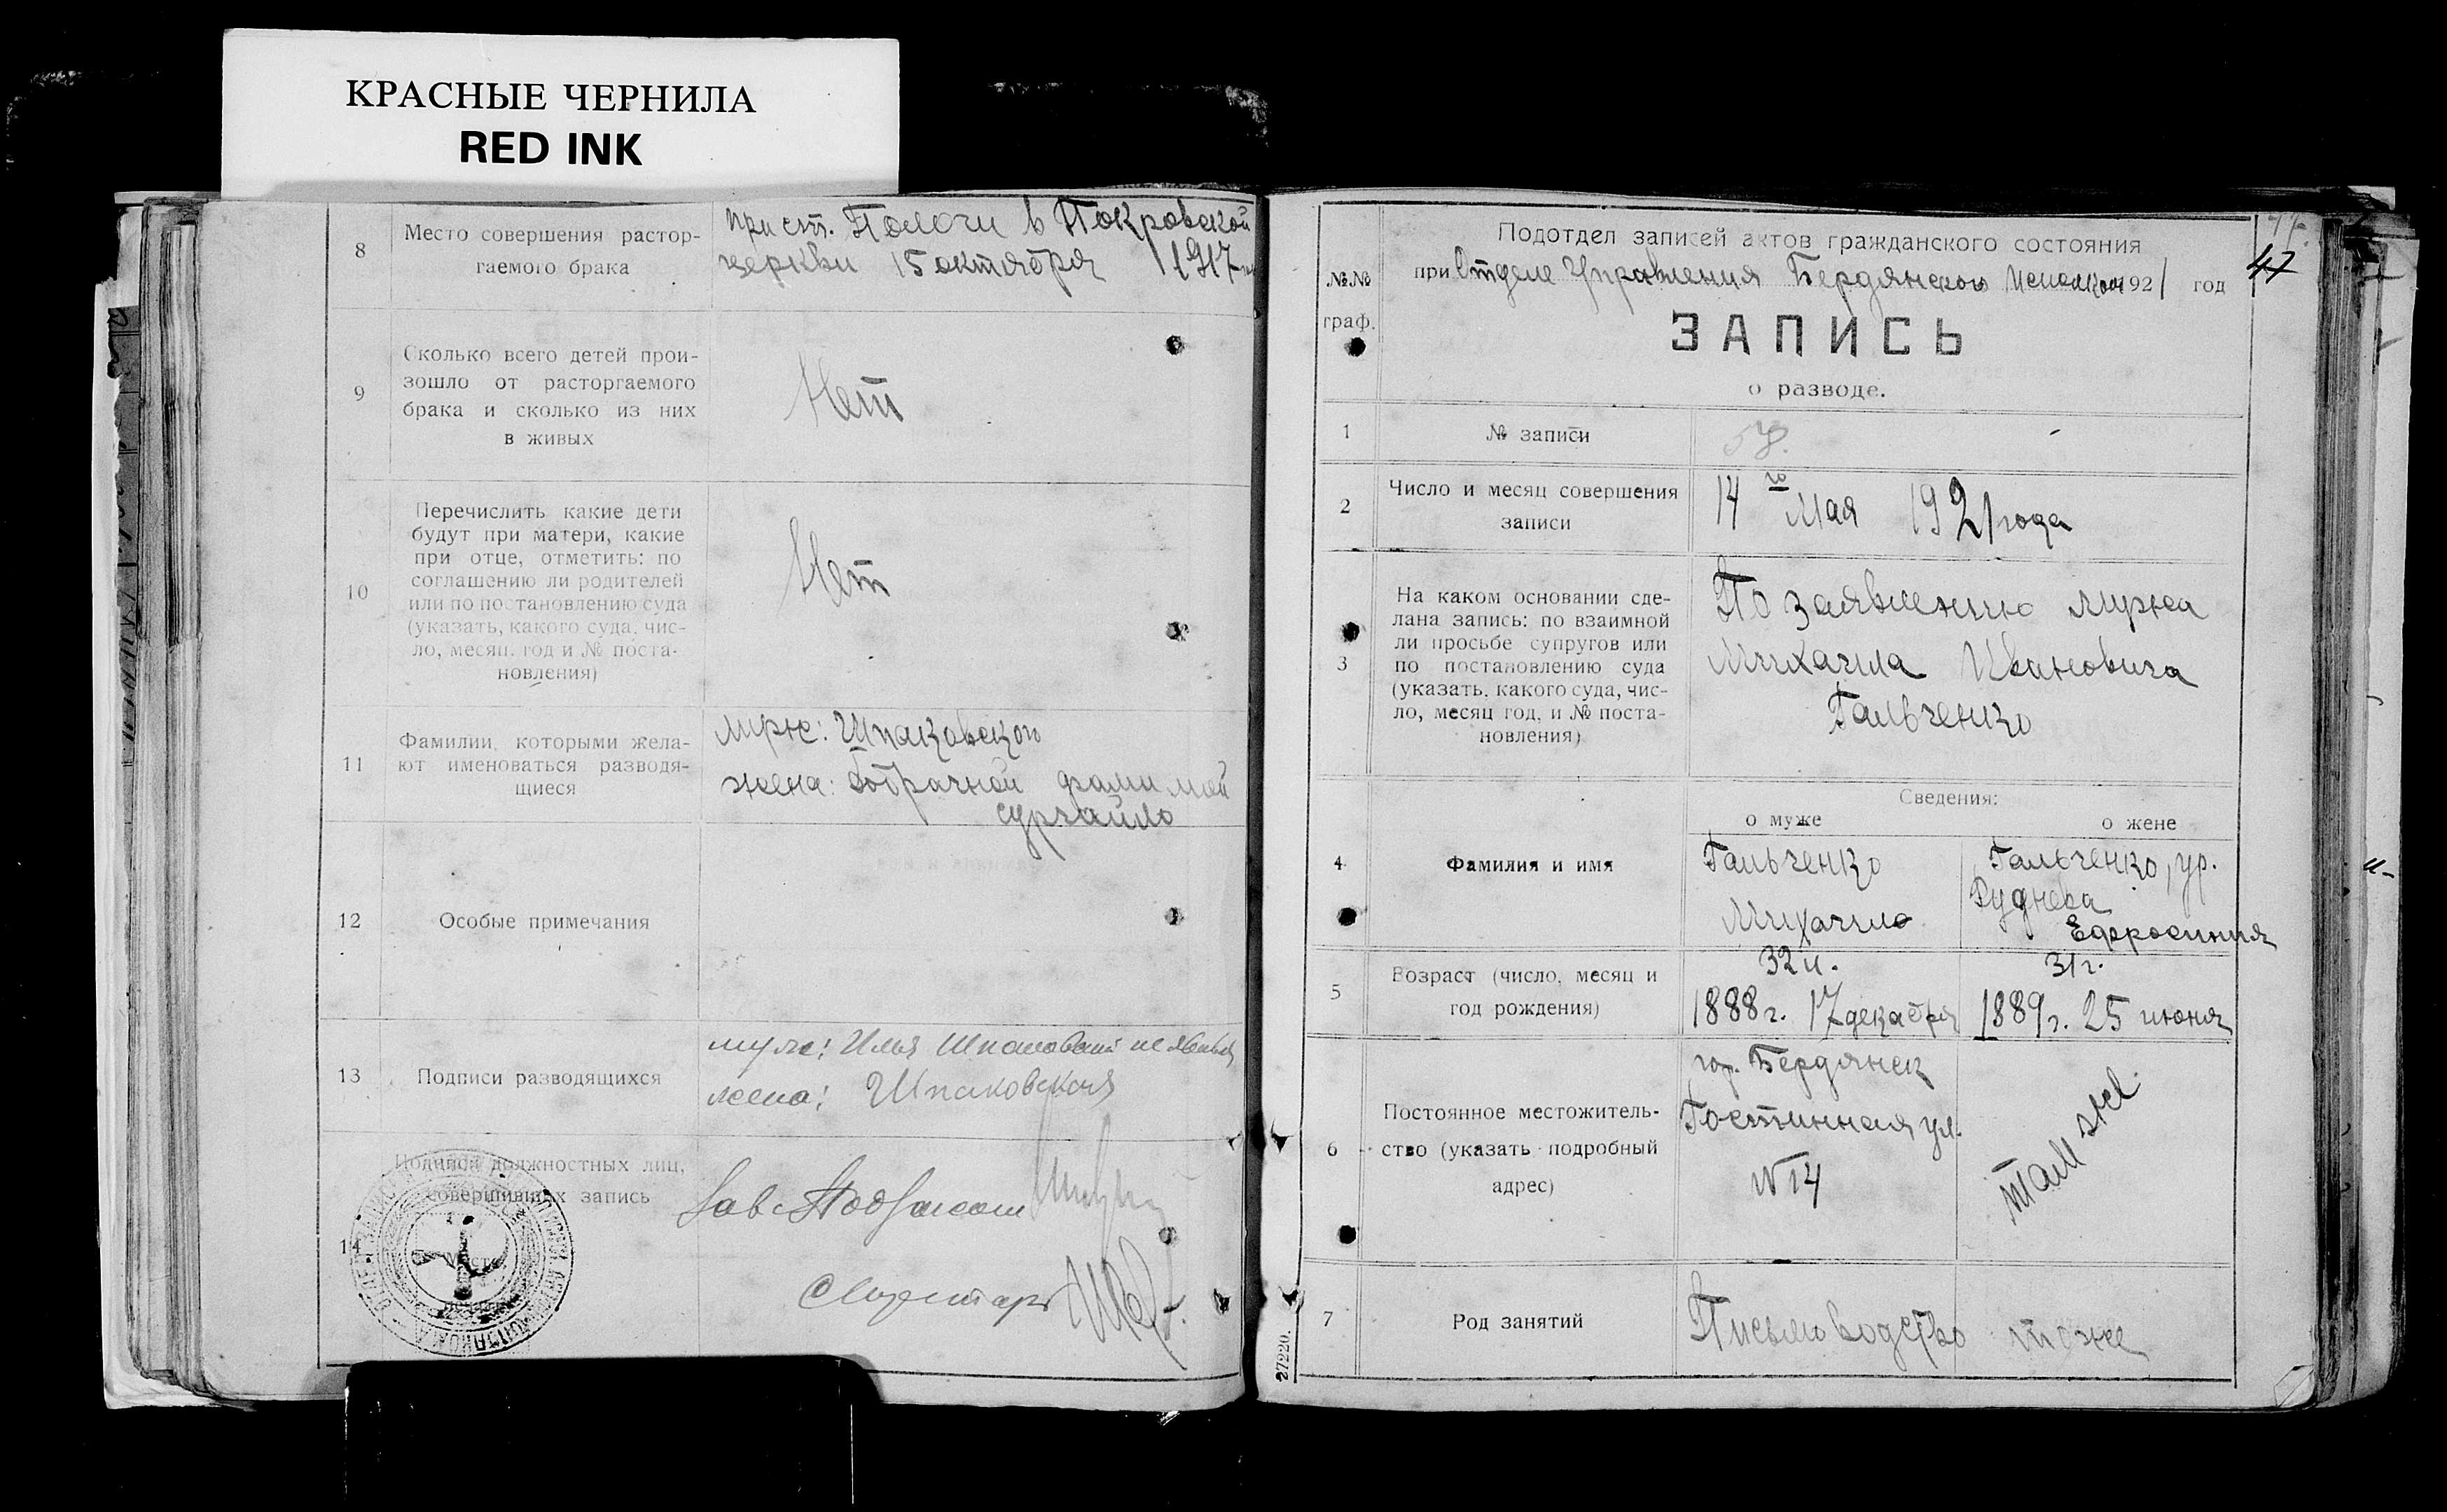 КРАСНЫЕ ЧЕРНИЛА
RED INK
8
Место совершения растор-
гаемого брака
при ст. Пологи в Покровской
церкви 15 октября 1917
9
Сколько всего детей прои-
зошло от расторгаемого
брака и сколько из них
в живых
Нет
10
Перечислить какие дети
будут при матери, какие
при отце, отметить: по
соглашению ли родителей
или по постановлению суда
(указать, какого суда, чис-
ло, месяц, год и № поста-
новления)
Нет
11
Фамилии, которыми жела-
ют именоваться разводя-
щиеся
муж: Шпаковского
жена: добрачной фамилией
12
Особые примечания
13
Подписи разводящихся
муж: Илья Шпаковский не явился
жена: Шпаковская
14
Подписи должностных лиц,
совершивших запись
Зав. Подотделом
Секретарь
Подотдел записей актов гражданского состояния
при Отделе Управления Бердянского Исполком 1921 год
47
№№
граф.
ЗАПИСЬ
о разводе.
1
№ записи
2
Число и месяц совершения
записи
14го Мая 1921 года
3
На каком основании сде-
лана запись: по взаимной
ли просьбе супругов или
по постановлению суда
(указать, какого суда, чис-
ло, месяц год, и № поста-
новления)
По заявлению мужа
Михаила Ивановича
Гальченко
Сведения:
о муже
о жене
4
Фамилия и имя
Гальченко
Михаил
Гальченко, ур.
Руднева
Ефросиния
5
Возраст (число, месяц и
год рождения)
32 л.
1888 г. 17 декабря
31 г.
1889 г. 25 июня
6
Постоянное местожитель-
ство (указать подробный
адрес)
гор. Бердянск
Гостинная ул.
№ 14
там же
7
Род занятий
Письмоводство
тоже
27220.